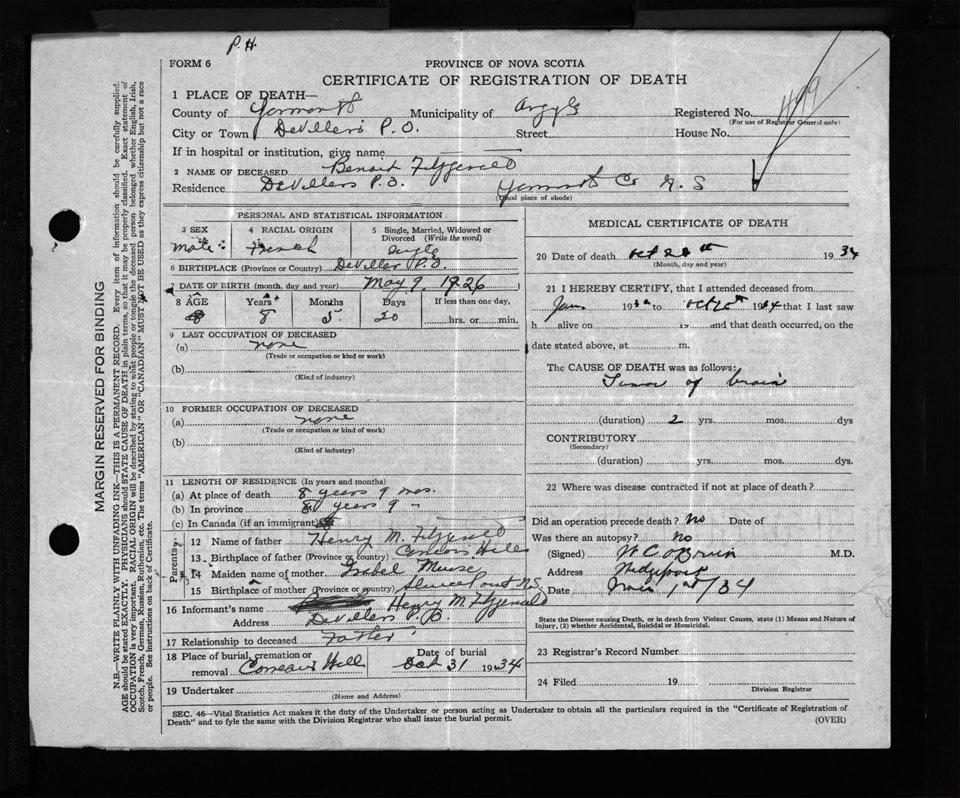 P. H.
FORM 6
PROVINCE OF NOVA SCOTIA
CERTIFICATE OF REGISTRATION OF DEATH
1 PLACE OF DEATH—
County of Yarmouth Municipality of Argyle Registered No. 499
(For use of Registrar General only)
City or Town DeVillers P.O. Street House No.
If in hospital or institution, give name
2 NAME OF DECEASED Benoit Fitzgerald
Residence DeVillers P.O. Yarmouth Co N.S
(Usual place of abode)
PERSONAL AND STATISTICAL INFORMATION
3 SEX 4 RACIAL ORIGIN 5 Single, Married, Widowed or Divorced (Write the word)
Male French Single
6 BIRTHPLACE (Province or Country) DeViller P.O.
7 DATE OF BIRTH (month, day and year) May 9. 1926
8 AGE Years Months Days If less than one day,
8 5 20 hrs. or min.
9 LAST OCCUPATION OF DECEASED
(a) none
(Trade or occupation or kind or work)
(b)
(Kind of industry)
10 FORMER OCCUPATION OF DECEASED
(a) none
(Trade or occupation or kind of work)
(b)
(Kind of industry)
11 LENGTH OF RESIDENCE (In years and months)
(a) At place of death 8 years 9 mos.
(b) In province 8 years 9 "
(c) In Canada (if an immigrant)
Parents
12 Name of father Henry M. Fitzgerald
13 Birthplace of father (Province or country) Comeau's Hill
14 Maiden name of mother Isabel Muise
15 Birthplace of mother (Province or country) Sluice Point N.S.
16 Informant's name Henry M Fitzgerald
Address DeVillers P.O.
17 Relationship to deceased Father
18 Place of burial, cremation or removal Comeau's Hill Date of burial Oct 31 1934
19 Undertaker
(Name and Address)
MEDICAL CERTIFICATE OF DEATH
20 Date of death Oct th 1934
(Month, day and year)
21 I HEREBY CERTIFY, that I attended deceased from
Jan 193 to Oct th 1934 that I last saw
h alive on 19 and that death occurred, on the
date stated above, at m.
The CAUSE OF DEATH was as follows:
Tumor of brain
(duration) 2 yrs. mos. dys
CONTRIBUTORY
(Secondary)
(duration) yrs. mos. dys.
22 Where was disease contracted if not at place of death?
Did an operation precede death? No Date of
Was there an autopsy? No
(Signed) W.C. O'Brien M.D.
Address Wedgeport
Date Nov 1st/34
State the Disease causing Death, or in death from Violent Causes, state (1) Means and Nature of
Injury, (2) whether Accidental, Suicidal or Homicidal.
23 Registrar's Record Number
24 Filed 19
Division Registrar
SEC. 46—Vital Statistics Act makes it the duty of the Undertaker or person acting as Undertaker to obtain all the particulars required in the "Certificate of Registration of
Death" and to fyle the same with the Division Registrar who shall issue the burial permit.
(OVER)
MARGIN RESERVED FOR BINDING
N.B.—WRITE PLAINLY WITH UNFADING INK—THIS IS A PERMANENT RECORD. Every item of information should be carefully supplied.
AGE should be stated EXACTLY. PHYSICIANS should STATE CAUSE OF DEATH in plain terms, so that it may be properly classified. Exact statement of
OCCUPATION is very important. RACIAL ORIGIN will be described by stating to what people or tongue the deceased person belonged whether English, Irish,
Scotch, French, German, Russian, Ruthenian, etc. The terms "AMERICAN" OR "CANADIAN" MUST NOT BE USED as they express citizenship but not a race
or people. See instructions on back of Certificate.